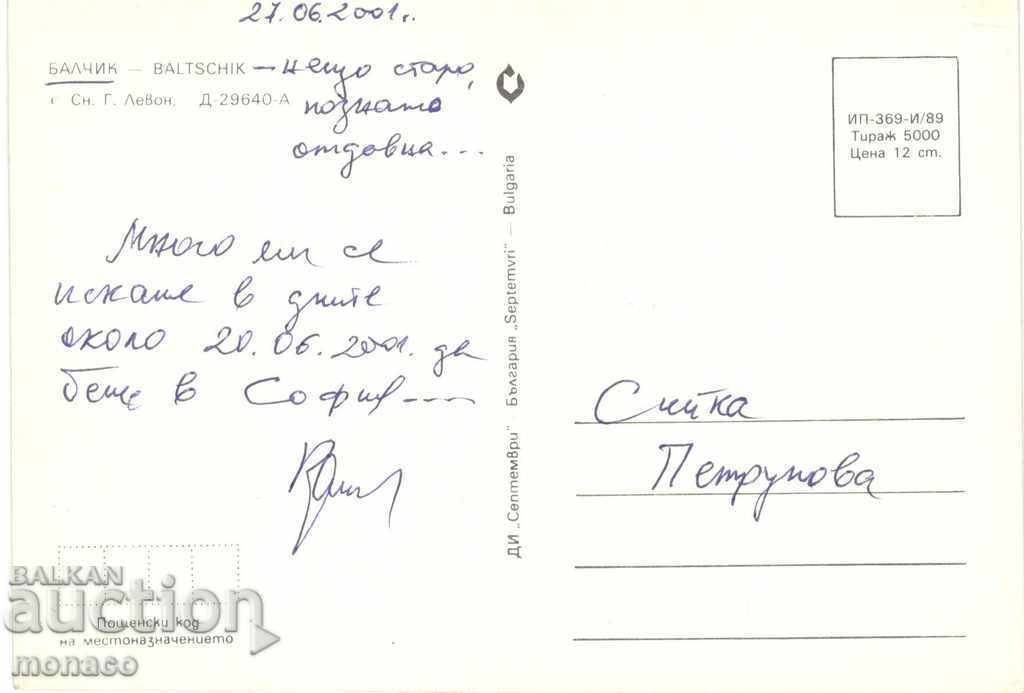 27.06.2001 г.
БАЛЧИК — BALTSCHIK — нещо старо,
Сн. Г. Левон. Д-29640-А
познато
отдавна...
Много ми се
искаше в дните
около 20.06.2001. да
беше в София....
ДИ „Септември" България „Septemvri" — Bulgaria
ИП-369-И/89
Тираж 5000
Цена 12 ст.
Ситка
Петрунова
Пощенски код
на местоназначението
BALKAN
auction
monaco